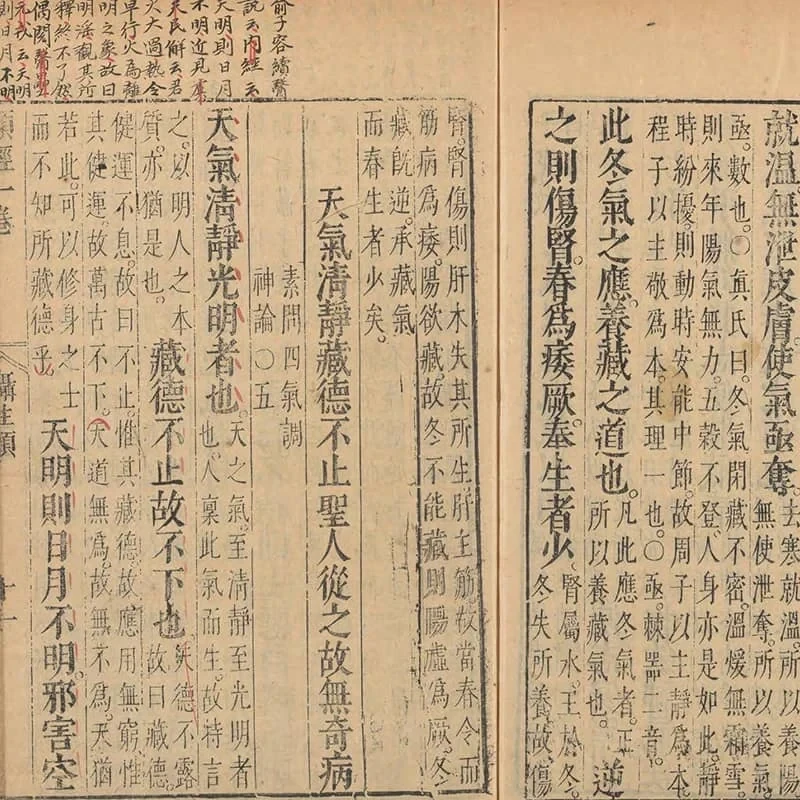 就溫無泄皮膚使氣亟奪。去寒就溫。所以養陽
無使泄奪。所以養氣
亟。數也。○眞氏曰。冬氣閉藏不密。溫煖無霜雪。
則來年陽氣無力。五穀不登。人身亦是如此。靜
時紛擾。則動時安能中節。故周子以主靜爲本。
程子以主敬爲本。其理一也。○亟。棘器二音。
此冬氣之應。養藏之道也。凡此應冬氣者。正
所以養藏氣也。逆
之則傷腎。春爲痿厥。奉生者少腎屬水。王於冬。
冬失所養。故傷
俞子容續醫
說云內經云
天明則日月
不明近見盧
天民解云君
火大過熱令
早行火爲離
明之象故曰
明淫觀其所
釋終不了然
偶閱醫壘
元戎云天明
則日月不明
腎。腎傷則肝木失其所生。肝主筋。故當春令而
筋病爲痿。陽欲藏。故冬不能藏。則陽虛爲厥。冬
藏既逆。承藏氣
而春生者少矣。
天氣清靜藏德不止聖人從之故無奇病
素問四氣調
神論○五
天氣清靜光明者也。天之氣。至清靜至光明者
也。人稟此氣而生。故特言
之。以明人之本
質。亦猶是也。
藏德不止故不下也。天德不露
故曰藏德。
健運不息。故曰不止。惟其藏德。故應用無窮。惟
其健運。故萬古不下。天道無爲。故無不爲。天猶
若此。可以修身之士
而不知所藏德乎。
天明則日月不明。邪害空
類經一卷 攝生類 十一